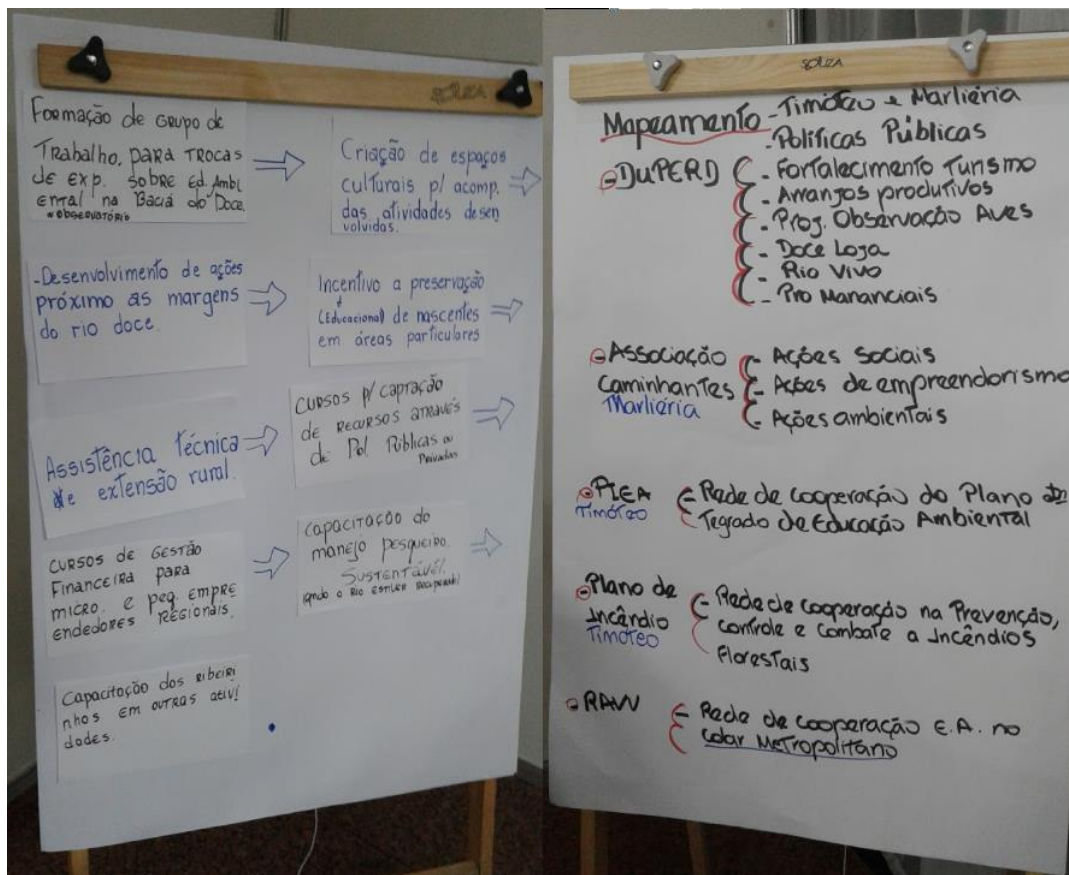 SOUZA
Formação de Grupo de
Trabalho, para trocas
de exp. sobre Ed. Ambi
ental na Bacia do Doce.
* observatório
Criação de espaços
culturais p/ acomp.
das atividades desen
volvidas.
-Desenvolvimento de ações
próximo as margens
do rio doce.
Incentivo a preservação
(Educacional) de nascentes
em áreas particulares
Assistência técnica
e extensão rural.
Cursos p/ captação
de recursos através
de Pol. Públicas ou
Privadas
Cursos de Gestão
Financeira para
micro. e peq. empre
endedores regionais.
Capacitação do
manejo pesqueiro.
Sustentável.
(qndo o Rio estiver recuperado)
Capacitação dos ribeiri
nhos em outras ativi
dades.
SOUZA
Mapeamento - Timóteo e Marliéria
- Políticas Públicas
- DuPERD - Fortalecimento Turismo
- Arranjos produtivos
- Proj. Observação Aves
- Doce Loja
- Rio Vivo
- Pro Mananciais
- Associação - Ações sociais
Caminhantes - Ações de empreendorismo
Marliéria - Ações ambientais
- PIEA - Rede de cooperação do Plano In
Timóteo tegrado de Educação Ambiental
- Plano de - Rede de cooperação na Prevenção,
Incêndio controle e combate a Incêndios
Timóteo Florestais
- Rede de cooperação E.A. no
colar Metropolitano